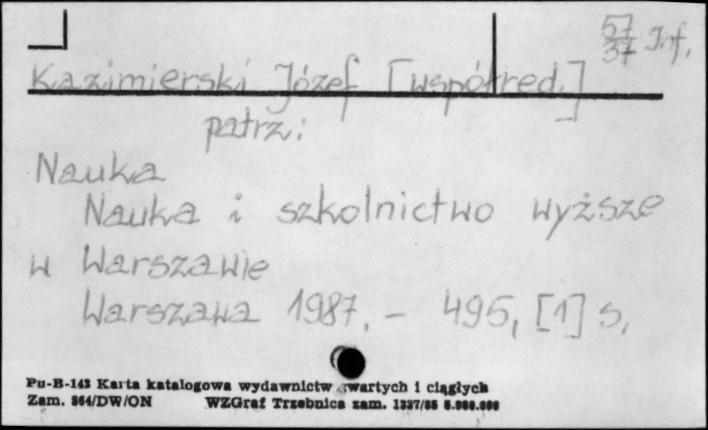 57
37 Inf.
Kazimierski Józef [współred.]
patrz:
Nauka
Nauka i szkolnictwo wyższe
w Warszawie
Warszawa 1987. – 495, [1] s.
Pu-B-143 Karta katalogowa wydawnictw zwartych i ciągłych
Zam. 864/DW/ON WZGraf Trzebnica zam. 1327/85